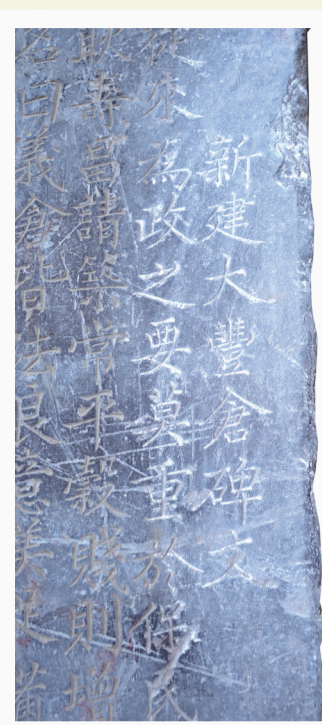 新建大豐倉碑文
從來為政之要莫重於保民
耿壽昌請築常平穀賤則增
名曰義倉皆法良意美